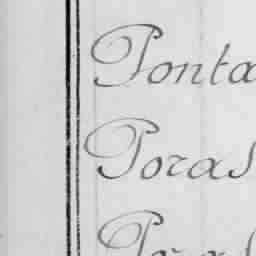 Ponta
Poras